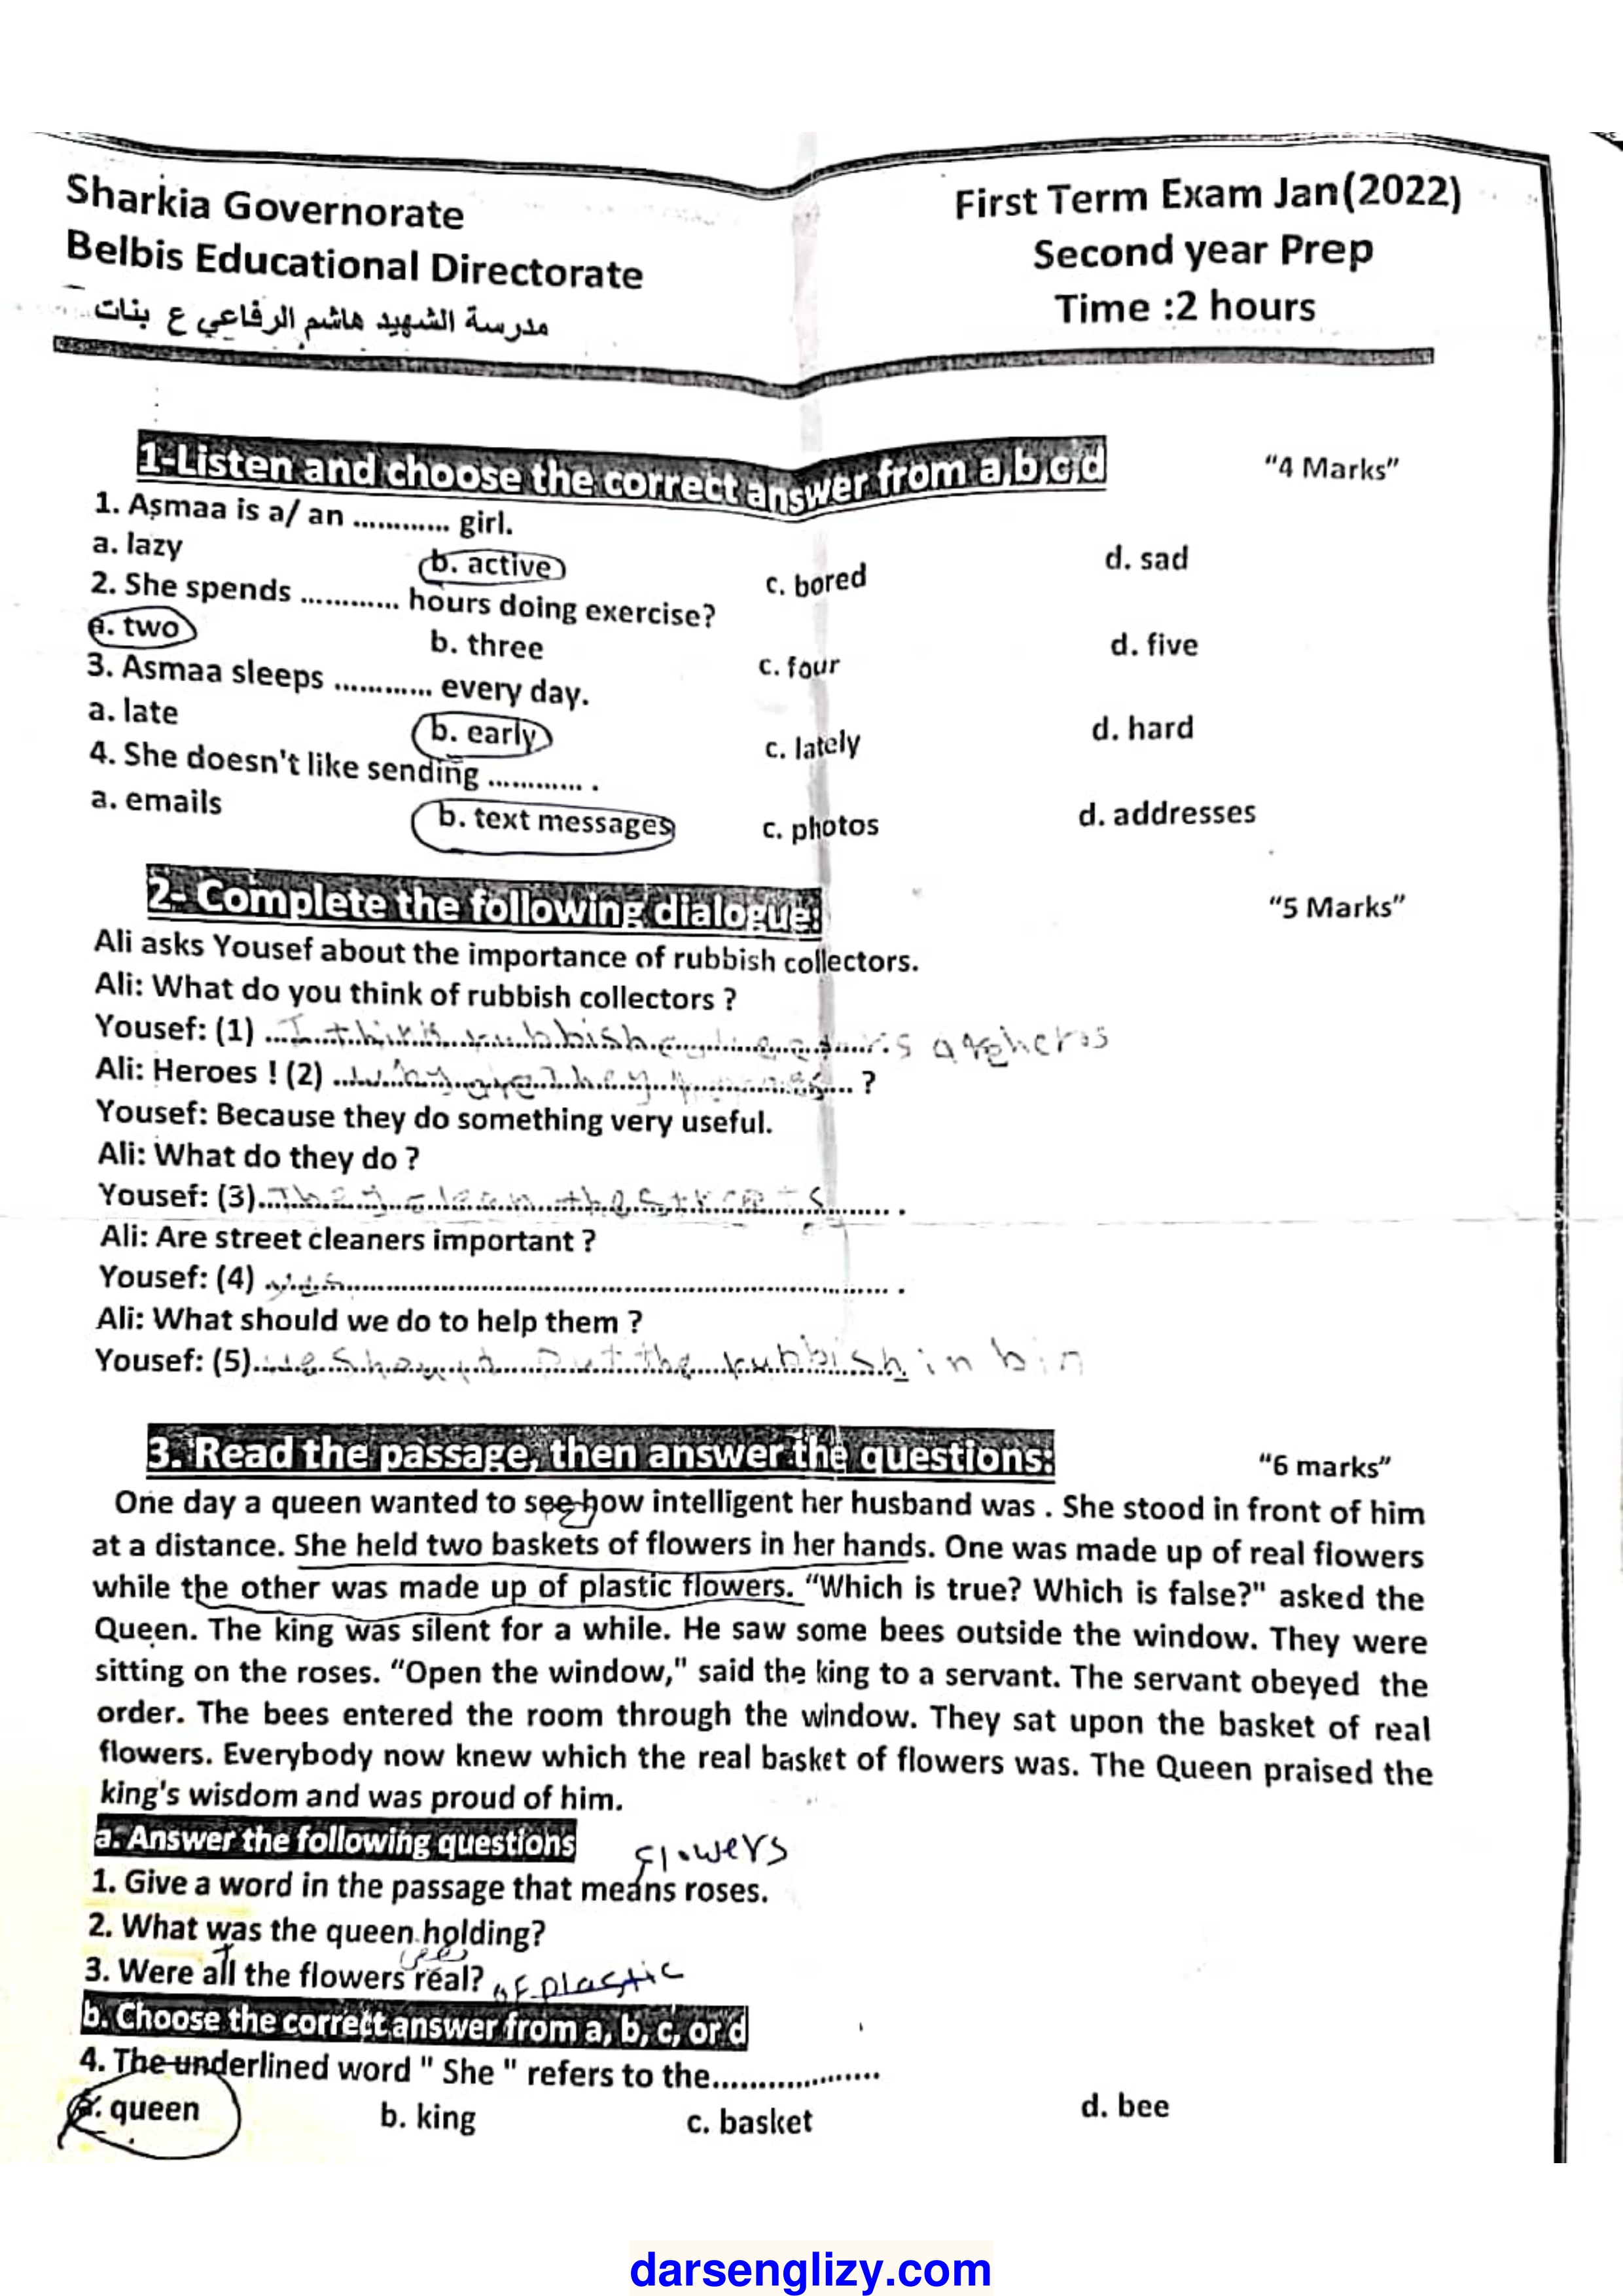 Sharkia Governorate
Belbis Educational Directorate
مدرسة الشهيد هاشم الرفاعي ع بنات
First Term Exam Jan(2022)
Second year Prep
Time :2 hours
1-Listen and choose the correct answer from a,b,c,d "4 Marks"
1. Asmaa is a/ an ............ girl.
a. lazy b. active c. bored d. sad
2. She spends ............ hours doing exercise?
a. two b. three c. four d. five
3. Asmaa sleeps ............ every day.
a. late b. early c. lately d. hard
4. She doesn't like sending ............ .
a. emails b. text messages c. photos d. addresses
2- Complete the following dialogue: "5 Marks"
Ali asks Yousef about the importance of rubbish collectors.
Ali: What do you think of rubbish collectors ?
Yousef: (1) I think rubbish
Ali: Heroes ! (2) why are they ?
Yousef: Because they do something very useful.
Ali: What do they do ?
Yousef: (3) They clean the streets .
Ali: Are street cleaners important ?
Yousef: (4) yes .
Ali: What should we do to help them ?
Yousef: (5) we should put the rubbish in bin
3. Read the passage, then answer the questions: "6 marks"
One day a queen wanted to see how intelligent her husband was . She stood in front of him
at a distance. She held two baskets of flowers in her hands. One was made up of real flowers
while the other was made up of plastic flowers. "Which is true? Which is false?" asked the
Queen. The king was silent for a while. He saw some bees outside the window. They were
sitting on the roses. "Open the window," said the king to a servant. The servant obeyed the
order. The bees entered the room through the window. They sat upon the basket of real
flowers. Everybody now knew which the real basket of flowers was. The Queen praised the
king's wisdom and was proud of him.
a. Answer the following questions
flowers
1. Give a word in the passage that means roses.
2. What was the queen holding?
3. Were all the flowers real? of plastic
b. Choose the correct answer from a, b, c, or d
4. The underlined word " She " refers to the...................
a. queen b. king c. basket d. bee
darsenglizy.com